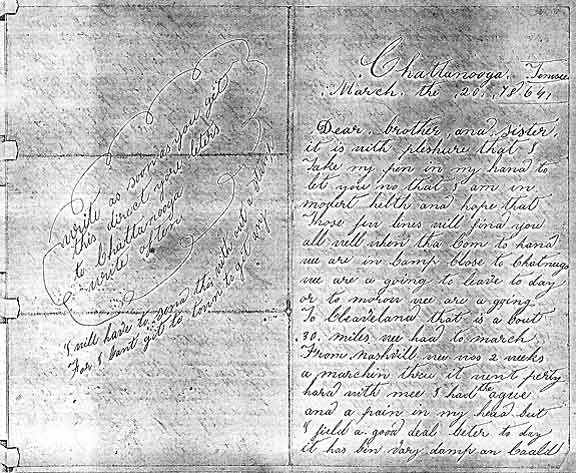 write as soon as you get
this direct your leters
to Chattanooga
write often
I will have to send this with out a stamp
For I cant git to town to get eny
Chattanooga. Tennsee
March. the .20. 1864.
Dear. brother. and. sister.
it is with pleshure that I
Take my pen in my hand to
let you no that I am in
mogert helth and hope that
Those few lines will find you
all well when tha Com to hand
wee are in Camp Close to Chatnuga
wee are a going to leave to day
or to morow wee are a going
To Cleaveland that is a bout
.30. miles wee had to march
From Nashvill wee wos 2 weeks
a marchin threw it went perty
hard with mee I had the ague
and a pain in my head but
I field a good deal beter to day
it has bin vary damp an Coald